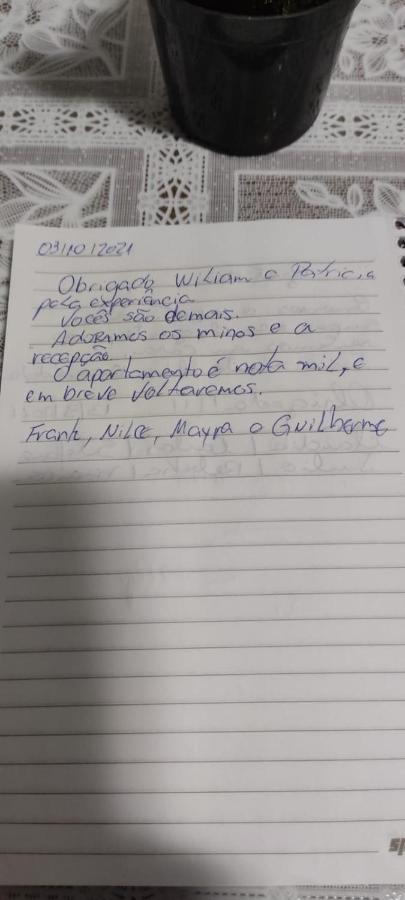 03/10/2021
Obrigado Wiliam e Patricia
pela experiência.
Vocês são demais.
Adoramos os mimos e a
recepção.
O apartamento é nota mil, e
em breve voltaremos.
Frank, Nilce, Mayra e Guilherme